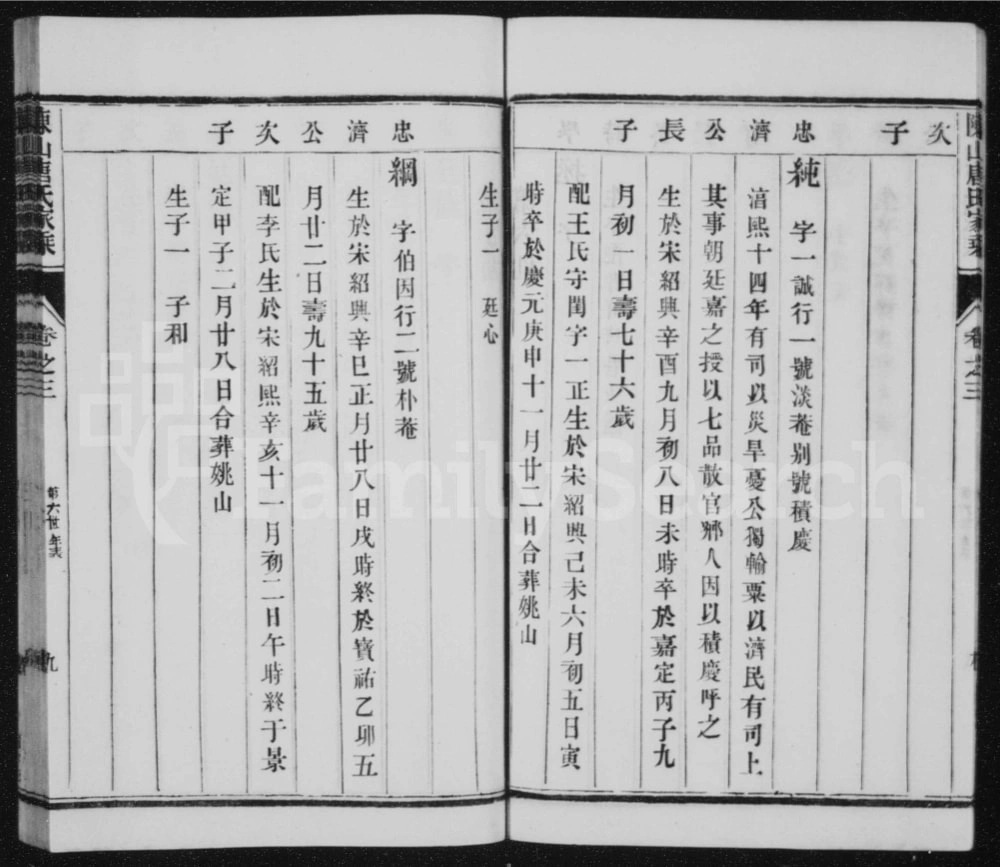 次
子
忠濟公長子
純 字一誠行一號淡菴别號積慶
淳熙十四年有司以災旱憂公獨輸粟以濟民有司上
其事朝廷嘉之授以七品散官鄉人因以積慶呼之
生於宋紹興辛酉九月初八日未時卒於嘉定丙子九
月初一日壽七十六歲
配王氏守閨字一正生於宋紹興己未六月初五日寅
時卒於慶元庚申十一月廿二日合葬姚山
生子一 廷心
忠濟公次子
綱 字伯因行二號朴菴
生於宋紹興辛巳正月廿八日戌時終於寶祐乙卯五
月廿二日壽九十五歲
配李氏生於宋紹熙辛亥十一月初二日午時終于景
定甲子二月廿八日合葬姚山
生子一 子和
卷之三
第六世年表
九
FamilySearch